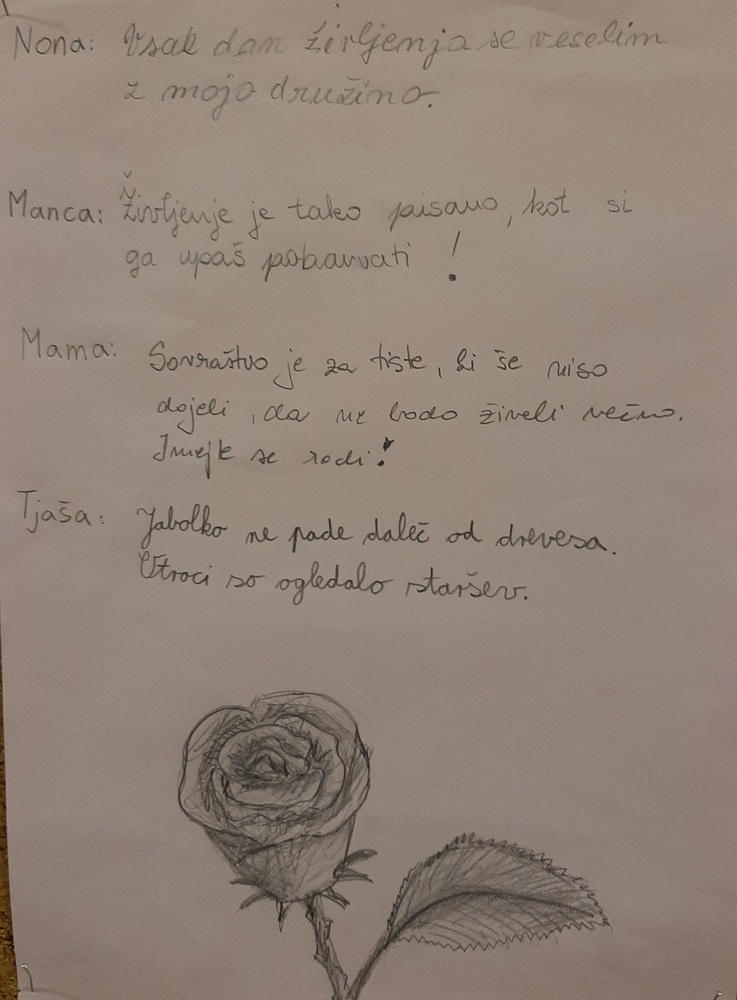 Nona: Vsak dan življenja se veselim
z mojo družino.
Manca: Življenje je tako pisano, kot si
ga upaš pobarvati!
Mama: Sovraštvo je za tiste, ki še niso
dojeli, da ne bodo živeli večno.
Imejte se radi!
Tjaša: Jabolko ne pade daleč od drevesa.
Otroci so ogledalo staršev.